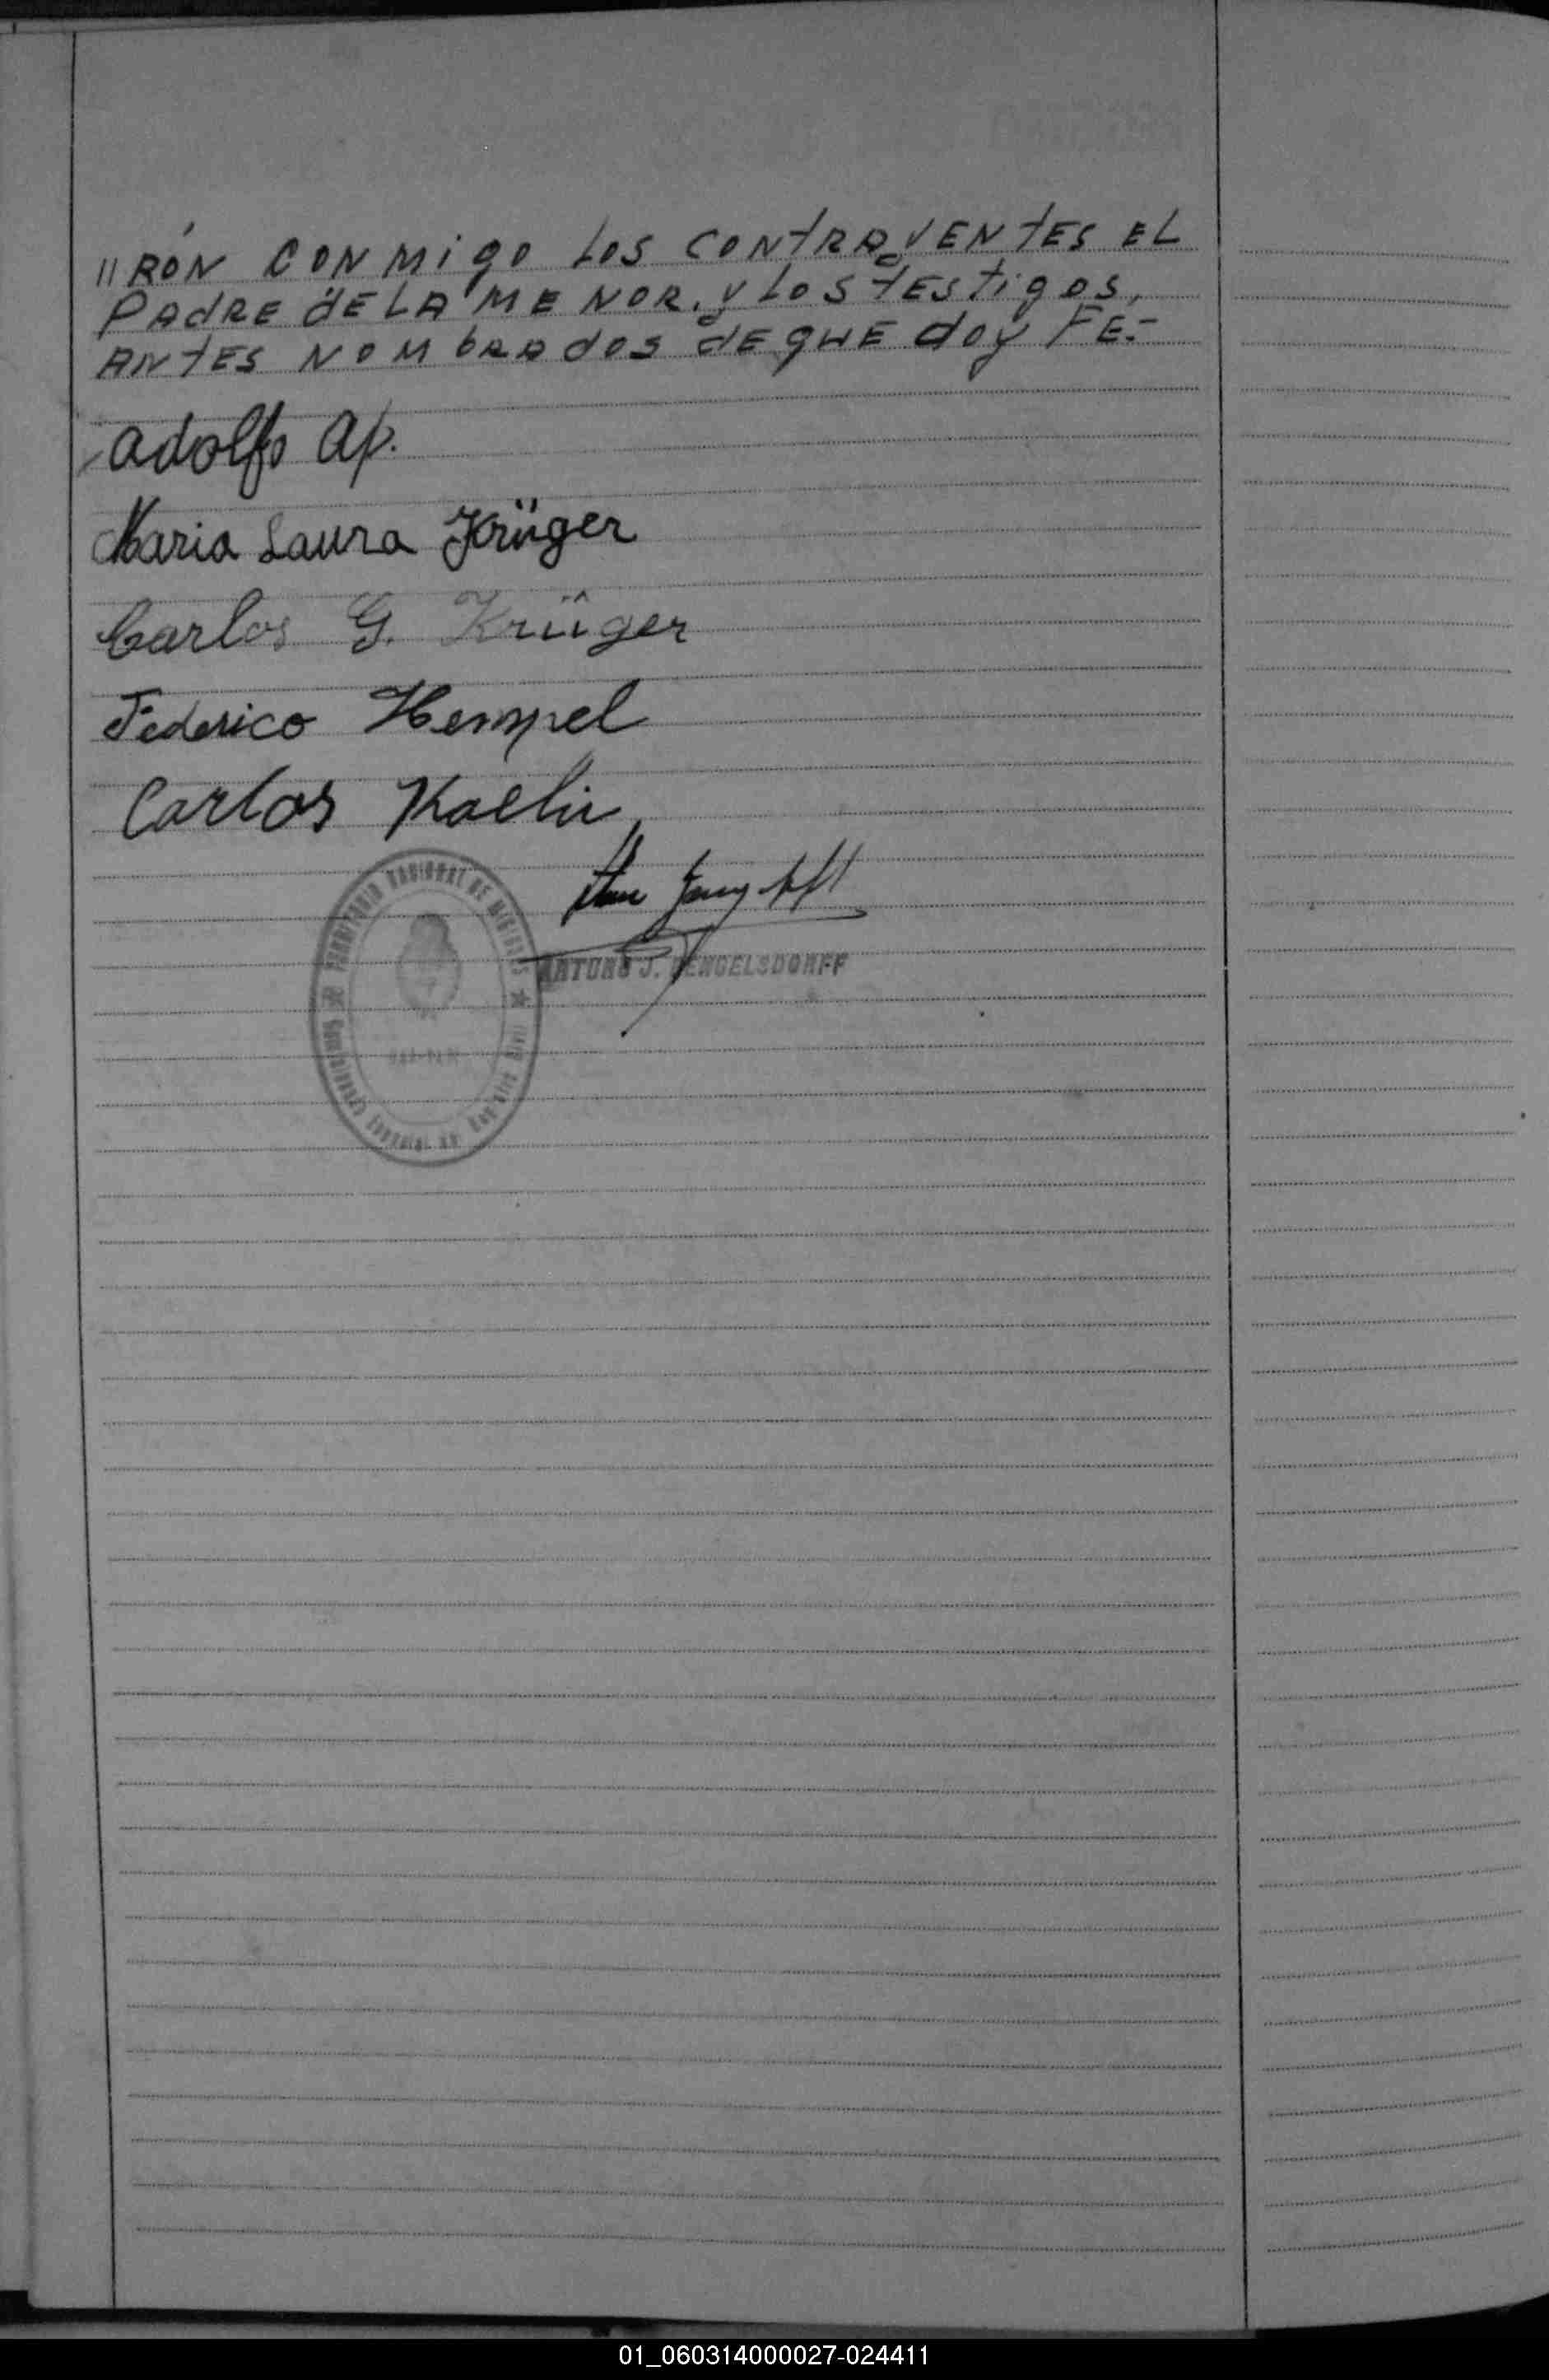 //RÓN CONMIGO LOS CONTRAYENTES EL
PADRE DE LA MENOR. Y LOS TESTIGOS,
ANTES NOMBRADOS DE QUE doy FE.-
Adolfo Ap.
Maria Laura Krüger
Carlos G. Krüger
Federico Hempel
Carlos Kaelin
TERRITORIO NACIONAL DE MISIONES
ARTURO J. DENGELSDORFF
01_060314000027-024411